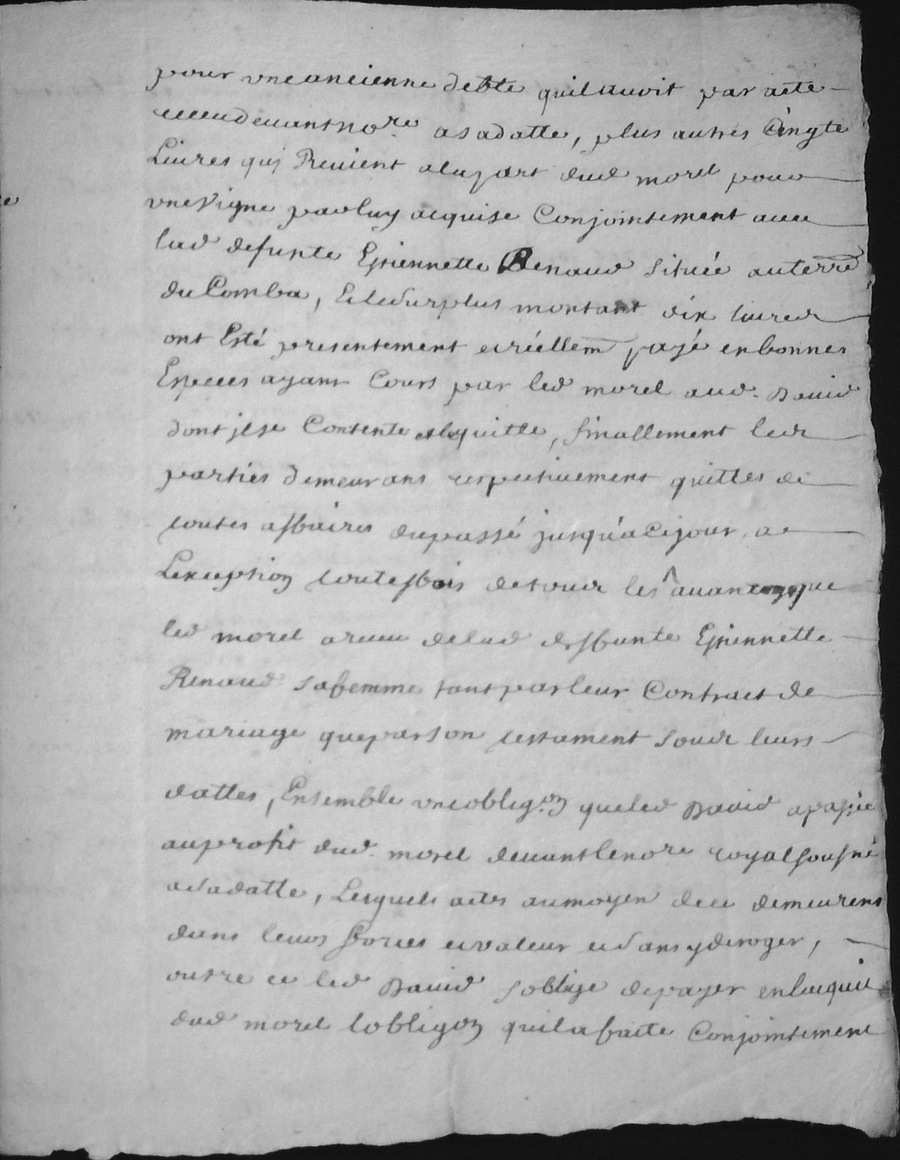 pour une ancienne debte quil avoit par acte
receu devant no.re a sa datte, plus autres Cingte
Livres quj Revient a la part dud morel pour
une Vigne par luy acquise Conjointement avec
lad defunte Estiennette Renaud Située au terre
du Comba, Et le surplus montant dix livres
ont Esté presentement et réellem payé en bonnes
Especes ayant Cours par led morel aud. David
dont jl se Contente et quitte, finallement lesd
parties demeurans respectivement quittes de
toutes affaires du passé jusqu'a ce jour, a
Lexception touttesfois de tous les avan que
led morel a receu de lad deffunte Estiennette
Renaud sa femme tant par leur Contract de
mariage que par son testament Sous leurs
dattes, Ensemble une oblig.on que led David a passée
au profit dud. morel devant le no.re royal sousné
a sa datte, Lesquels actes au moyen de ce demeurens
dans leurs forces et valeur et sans y deroger,
outre ce led David s'oblige de payer en lacquit
dud morel lobligon quil a faitte Conjointement